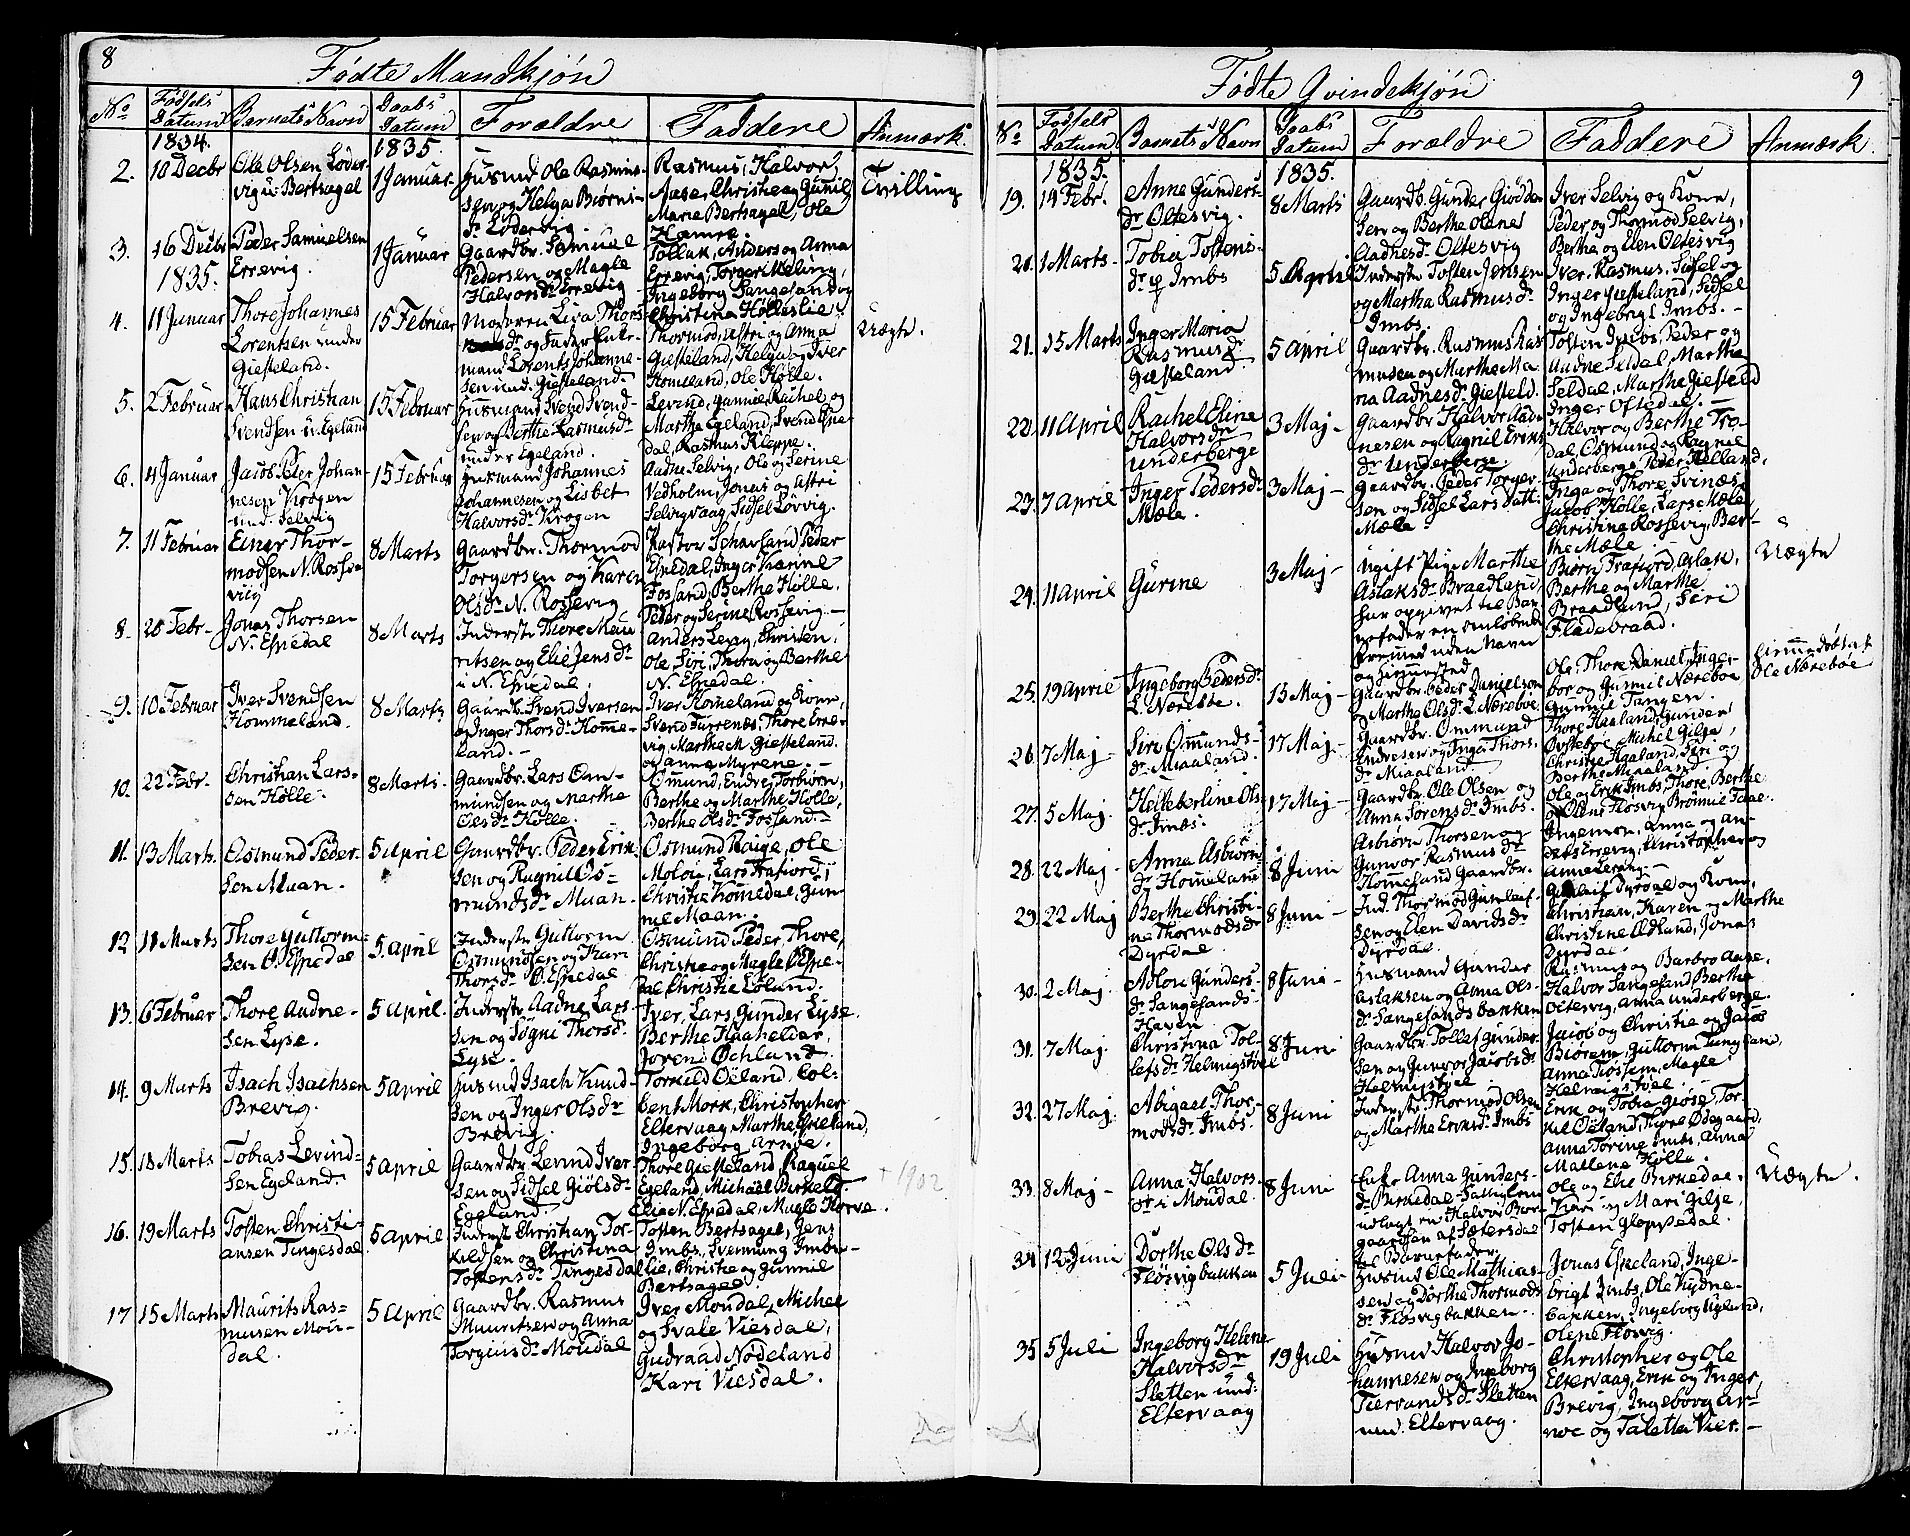 8
Fødte Mandkjøn
No
Fødsels
Datum
Barnets Navn
Daabs
Datum
Forældre
Faddere
Anmærk.
1834.
1835.
2.
10 Decbr
Ole Olsen Løder-
vig u. Bertsagel
1 Januar.
Husmd Ole Rasmus-
sen og Helga Biørns-
dr Lødervig.
Rasmus, Halvor
Aase, Christie og Gunil
Marie Bertsagel, Ole
Hamre.
Tvilling
3.
16 Decbr
Peder Samuelsen
Errevig.
1 Januar
Gaardbr. Samuel
Pedersen og Magle
Halvorsdr Errevig
Tollak, Anders og Anna
Errevig, Torger Meling,
Ingeborg Sangesand og
Christina Hølleslie.
1835.
4.
11 Januar
Thore Johannes
Lorentsen under
Giesteland.
15 Februar
Moderen Liva Thors-
dr og Fader Enke-
mand Lorents Johanne-
sen und. Giesteland.
Thormod, Astri og Anna
Giesteland, Helga og Iver
Homeland, Ole Hølle.
Uægte.
5.
2 Februar
Hans Christian
Svendsen u. Egeland
15 Februar
Husmand Svend Svend-
sen og Berthe Rasmusdr
under Egeland.
Levind, Gunnil, Rachel og
Marthe Egeland, Svend Espe-
dal, Rasmus Kleppe.
6.
4 Januar
Jacob Peter Johan-
nesen Krogen
und. Selvig
15 Februar
Husmand Johannes
Johannesen og Lisbet
Halvorsdr Krogen
Audne Selvig, Ole og Serine
Vedholm, Jonas og Astri
Selvigvaag, Sidsel Lørvig.
7.
11 Februar
Einer Thor-
modsen N. Rosse-
vig
8 Marts
Gaardbr. Thormod
Torgersen og Karen
Olsdr N. Rossevig
Pastor Schavland, Peder
Espedal, Inger Karine
Fossand, Berthe Hølle.
Peder og Serine Rossevig.
8.
20 Febr.
Jonas Thorsen
N. Espedal
8 Marts
Inderste Thore Mau-
ritsen og Elie Jensdr
i N. Espedal.
Anders Levig, Christen,
Ole, Siri, Thora og Berthe
N. Espedal.
9.
10 Februar
Iver Svendsen
Hommeland.
8 Marts
Gaardb. Svend Iversen
og Inger Thorsdr Home-
land.
Iver Homeland og Kone,
Svend Turrenes, Thore Erre-
vig, Marthe M. Giesteland.
og Anne Myrene.
10.
22 Febr.
Christian Lars-
sen Hølle.
8 Marts.
Gaardbr. Lars Osm-
undsen og Marthe
Olsdr Hølle.
Osmund, Endre, Torbiørn,
Berthe og Marthe Hølle,
Berthe Olsdr Fossand.
11.
13 Marts.
Osmund Peder-
sen Maan.
5 April
Gaardbr. Peder Erik-
sen og Ragnil Os-
mundsdr Maan.
Osmund Rauge, Ole
Moloie, Lars Frafiord,
Christie Homedal, Gun-
nil Maan.
12
11 Marts
Thore Guttorm-
sen Ø. Espedal
5. April
Inderste Guttorm
Osmundsen og Kari
Thorsdr Ø. Espedal
Osmund, Peder, Thore,
Christie og Magle Espe-
dal, Christie Løland.
13.
6 Februar
Thore Audne-
sen Lyse.
5 April.
Inderste Aadne Lars-
sen og Søgni Thorsdr
Lyse.
Iver, Lars, Gunder Lyse.
Berthe Haaheldar,
Jorend Ochland.
14.
9 Marts
Isach Isachsen
Brevig.
5 April
Husmd Isach Knud-
sen og Inger Olsdr
Brevig.
Torkild Oëland, Col-
bent Mork, Christopher
Eltervaag, Marthe Espeland,
Ingeborg Arnøe.
15.
18 Marts
Tobias Levind-
sen Egeland.
5 April
Gaardbr. Levind Iver-
sen og Sidsel Giølsdr
Egeland.
Thore Giesteland, Raquel
Egeland, Michael Birkeld.
Elie N. Espedal, Magle Horve.
+ 1902
16.
19 Marts
Tosten Christi-
ansen Tingesdal
5 April
Inderst. Christian Tor-
kildsen og Christina
Tostensdr Tingesdal
Tosten Bertsagel, Jens
Imbs, Svennung Imbs-
lie, Christie og Gunnil
Bertsagel.
17
15 Marts
Maurits Ras-
musen Mou-
dal.
5 April
Gaardbr. Rasmus
Mauritsen og Anna
Torgiusdr Moudal
Iver Moudal, Michel
og Svale Viesdal,
Gudraad Nødeland
Kari Viesdal.
9
Fødte Qvindekjøn
No
Fødsels
Datum
Barnets Navn
Daabs
Datum
Forældre
Faddere
Anmærk
1835.
1835.
19.
14 Febr.
Anne Gunders-
dr Oltesvig.
8 Marts
Gaardb. Gunder Giødden-
sen og Berthe Olene
Aadnesdr Oltesvig
Iver Selvig og Kone,
Peder og Thormod Selvig,
Berthe og Elen Oltesvig
20.
1 Marts
Tobia Tostens-
dr p Imbs
5 April
Inderste Tosten Jensen
og Martha Rasmusdr
Imbs.
Iver, Rasmus, Sidsel og
Inger Giesteland, Sidsel
og Ingebrigt Imbs.
21.
15 Marts
Inger Maria
Rasmusdr
Giesteland.
5 April
Gaardbr. Rasmus Ras-
musen og Marthe Ma-
ria Aadnesdr Giesteld.
Tosten Imbs, Peder og
Audne Seldal, Marthe
Seldal, Marthe Giesteld
Inger Oftedal.
22.
11 April
Rachel Eline
Halvorsdr
Underberge
3 Maj
Gaardbr Halvor Aad-
nesen og Ragnil Eriks-
dr Underberge.
Halvor og Berthe Fro-
dal, Osmund og Ragnil
Underberge, Peder Helland,
23.
7 April
Inger Pedersdr
Mæle.
3 Maj
Gaardbr. Peder Torger-
sen og Sidsel Lars Datt.
Mæle
Inga og Thore Svinæs,
Jacob Hølle, Lars Mæle,
Christina Rossevig, Ber-
the Mæle
24.
11 April
Gurine
3 Maj
Ugift Pige Marthe
Aslaksdr Braadland
har opgivet til Bar-
nefader en omløbende
fremmed uden Navn
og Hjemsted
Biørn Frafiord, Aslak,
Berthe og Marthe
Braadland, Siri
Fladebraad.
Uægte
25.
19 April
Ingeborg Pedersdr
L. Nærebøe.
15 Maj
Gaardbr. Peder Danielsen
og Marthe Olsdr L. Nærebøe.
Ole, Thore, Daniel, Inge-
bor og Gunnil Nærebøe
Gunnil Tangen.
Hiemmedøbt af
Ole Nærebøe
26.
7 Maj
Siri Ommunds-
dr Miaaland.
17 Maj
Gaardbr. Ommund
Endresen og Inga Thors-
dr Miaaland
Thore Haaland, Gunder
Øvstebøe, Michel Gilje,
Christie Haaland, Siri og
Berthe Miaaland
27.
5 Maj.
Helleberline Ols-
dr Imbs.
17 Maj
Gaardbr. Ole Olsen og
Anna Sørensdr Imbs.
Ole og Erik Imbs, Thore, Berthe
og Olene Fløsvig, Brønnil Taae.
28.
22 Maj
Anna Asbiørns-
dr Homeland
8 Juni
Asbiørn Thorsen og
Gunvor Rasmusdr
Hommeland Gaardbr.
Ingemon, Anna og An-
ders Errevig, Christopher og
Anne Lerang.
29.
22 Maj
Berthe Christi-
ne Thormodsdr
Dyrdal
8 Juni
Ind. Thormod Gunleif-
sen og Elen Davidsdr
Dyrdal.
Gunleif Dyrdal og Kone,
Christian, Karen og Marthe
Christine Adland, Jonas
Dyrdal
30.
2 Maj.
Adlou Gunders-
dr Sangesands-
Haven
8 Juni
Husmand Gunder
Aslaksen og Anna Ols-
dr Sangesandsbakken
Rasmus og Barbro Aase,
Halvor Sangesand, Berthe
Oltesvig, Anna Underberge.
31.
7 Maj.
Christina Tol-
lefsdr Helmigstvel
8 Juni
Gaardbr. Tollef Gunder-
sen og Gunvor Jacobsdr
Helmigstvel
Jacob og Christie og Jacob
Biørem, Guttorm Tungland,
Anna Fiossem, Magle
Helmigstvel
32.
27 Maj.
Abigael Thor-
modsdr Imbs.
8 Juni
Inderste Thormod Olsen
og Martha Ericksdr Imbs
Erik og Tobia Giøse, Tor-
kil Oëland, Thore Ødegaard,
Anna Torine Imbs, Anna
Mallene Hølle.
33.
8 Maj
Anna Halvors-
dr i Moudal
8 Juni
Enke Anna Gunders-
dr Birkedal-Fattiglem
udlagt en Halvor Bor-
gaardsen af Sætersdal
til Barnefader.
Ole og Elie Birkedal.
Kari og Mari Gilje,
Tosten Gloppedal.
Uægte.
34
12 Juni
Dorthe Olsdr
Fløsvigbakken
5 Juli
Husmd Ole Mathias-
sen og Dorthe Thormods-
dr Fløsvigbakken.
Jonas Espeland, Inge-
brigt Imbs, Ole Kydne-
bakken, Ingeborg Uglend,
Olene Fløsvig.
35
5 Juli
Ingeborg Helene
Halvorsdr
Sletten und:
Eltervaag
19 Juli
Husmd Halvor Jo-
hannesen og Ingeborg
Tiervandsdr Sletten
und. Eltervaag.
Christopher og Ole
Eltervaag, Erik og Inger
Brevig, Ingeborg Ar-
noe og Taletta Vier-